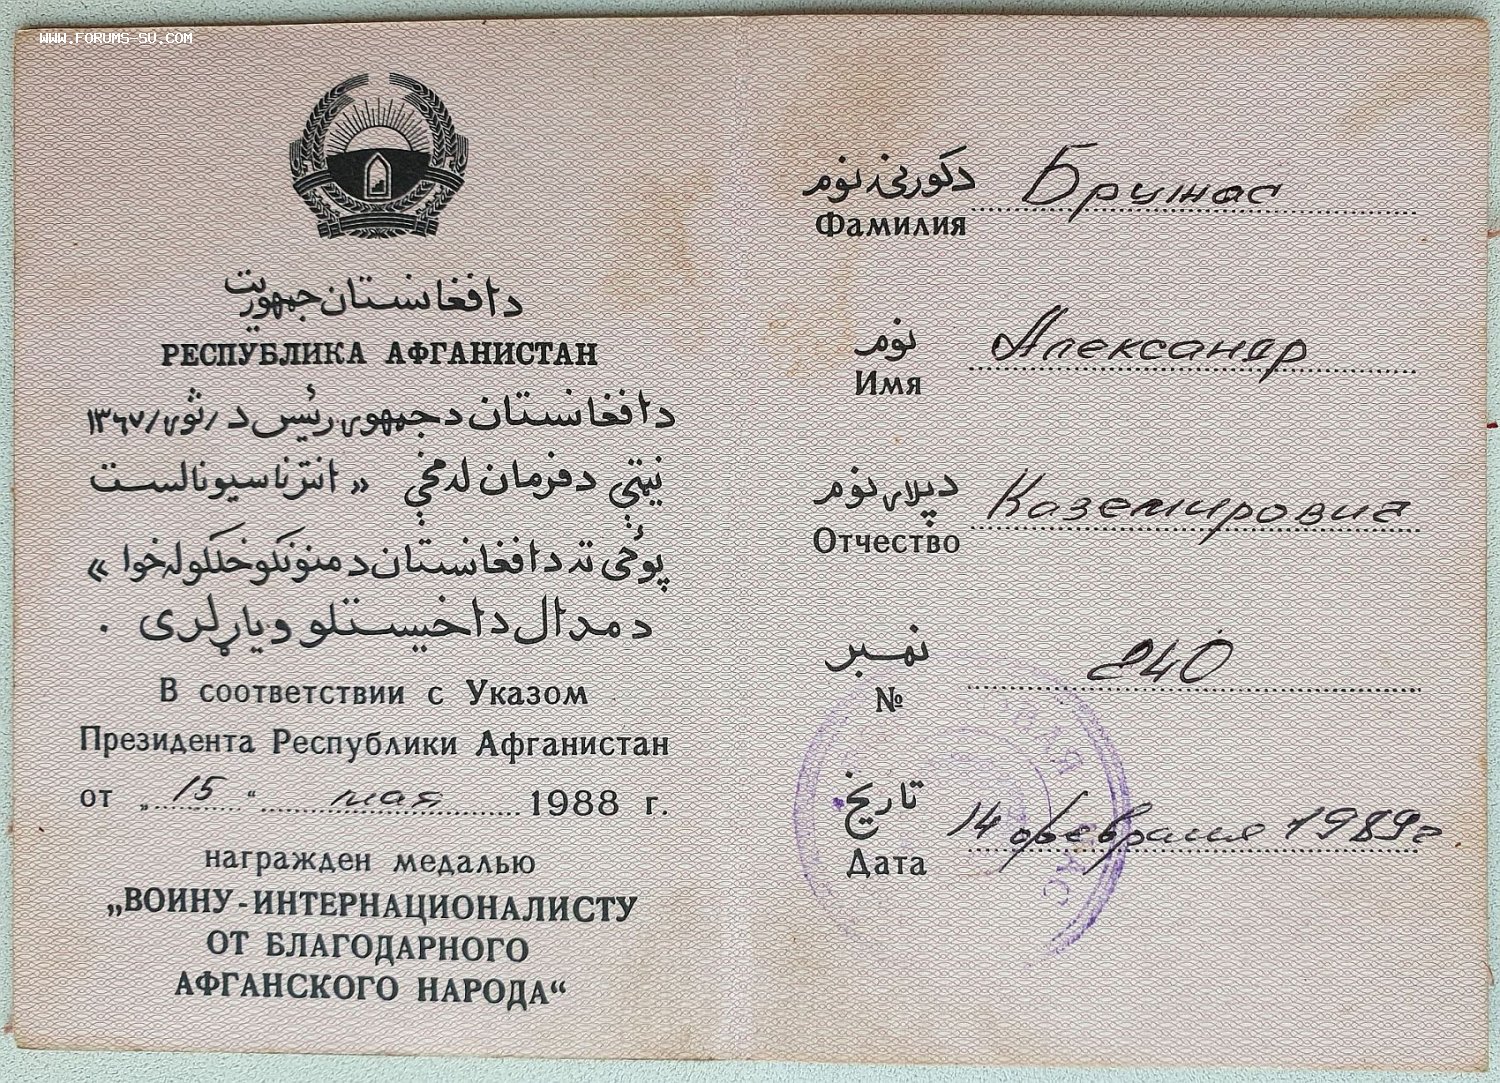 WWW.FORUMS-SU.COM
د افغانستان جمهوریت
РЕСПУБЛИКА АФГАНИСТАН
د افغانستان د جمهور رئیس د / ثور / ۱۳۶۷
نیټې د فرمان له مخې « انترناسیونالست
پوځي ته د افغانستان د منونکو خلکو له خوا »
د مدال د اخیستلو ویاړ لری .
В соответствии с Указом
Президента Республики Афганистан
от „ 15 “ мая 1988 г.
награжден медалью
„ВОИНУ-ИНТЕРНАЦИОНАЛИСТУ
ОТ БЛАГОДАРНОГО
АФГАНСКОГО НАРОДА“
د کورنۍ نوم
Фамилия Бружас
نوم
Имя Александр
د پلار نوم
Отчество Каземирович
نمبر
№ 240
تاریخ
Дата 14 февраля 1989 г